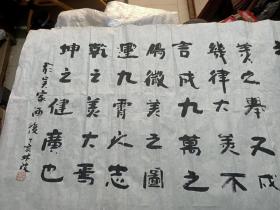 美之舉又成
幾律大美不
言成九萬之
鵬微美之圖
運九霄之志
乾之美大焉
坤之健廣也